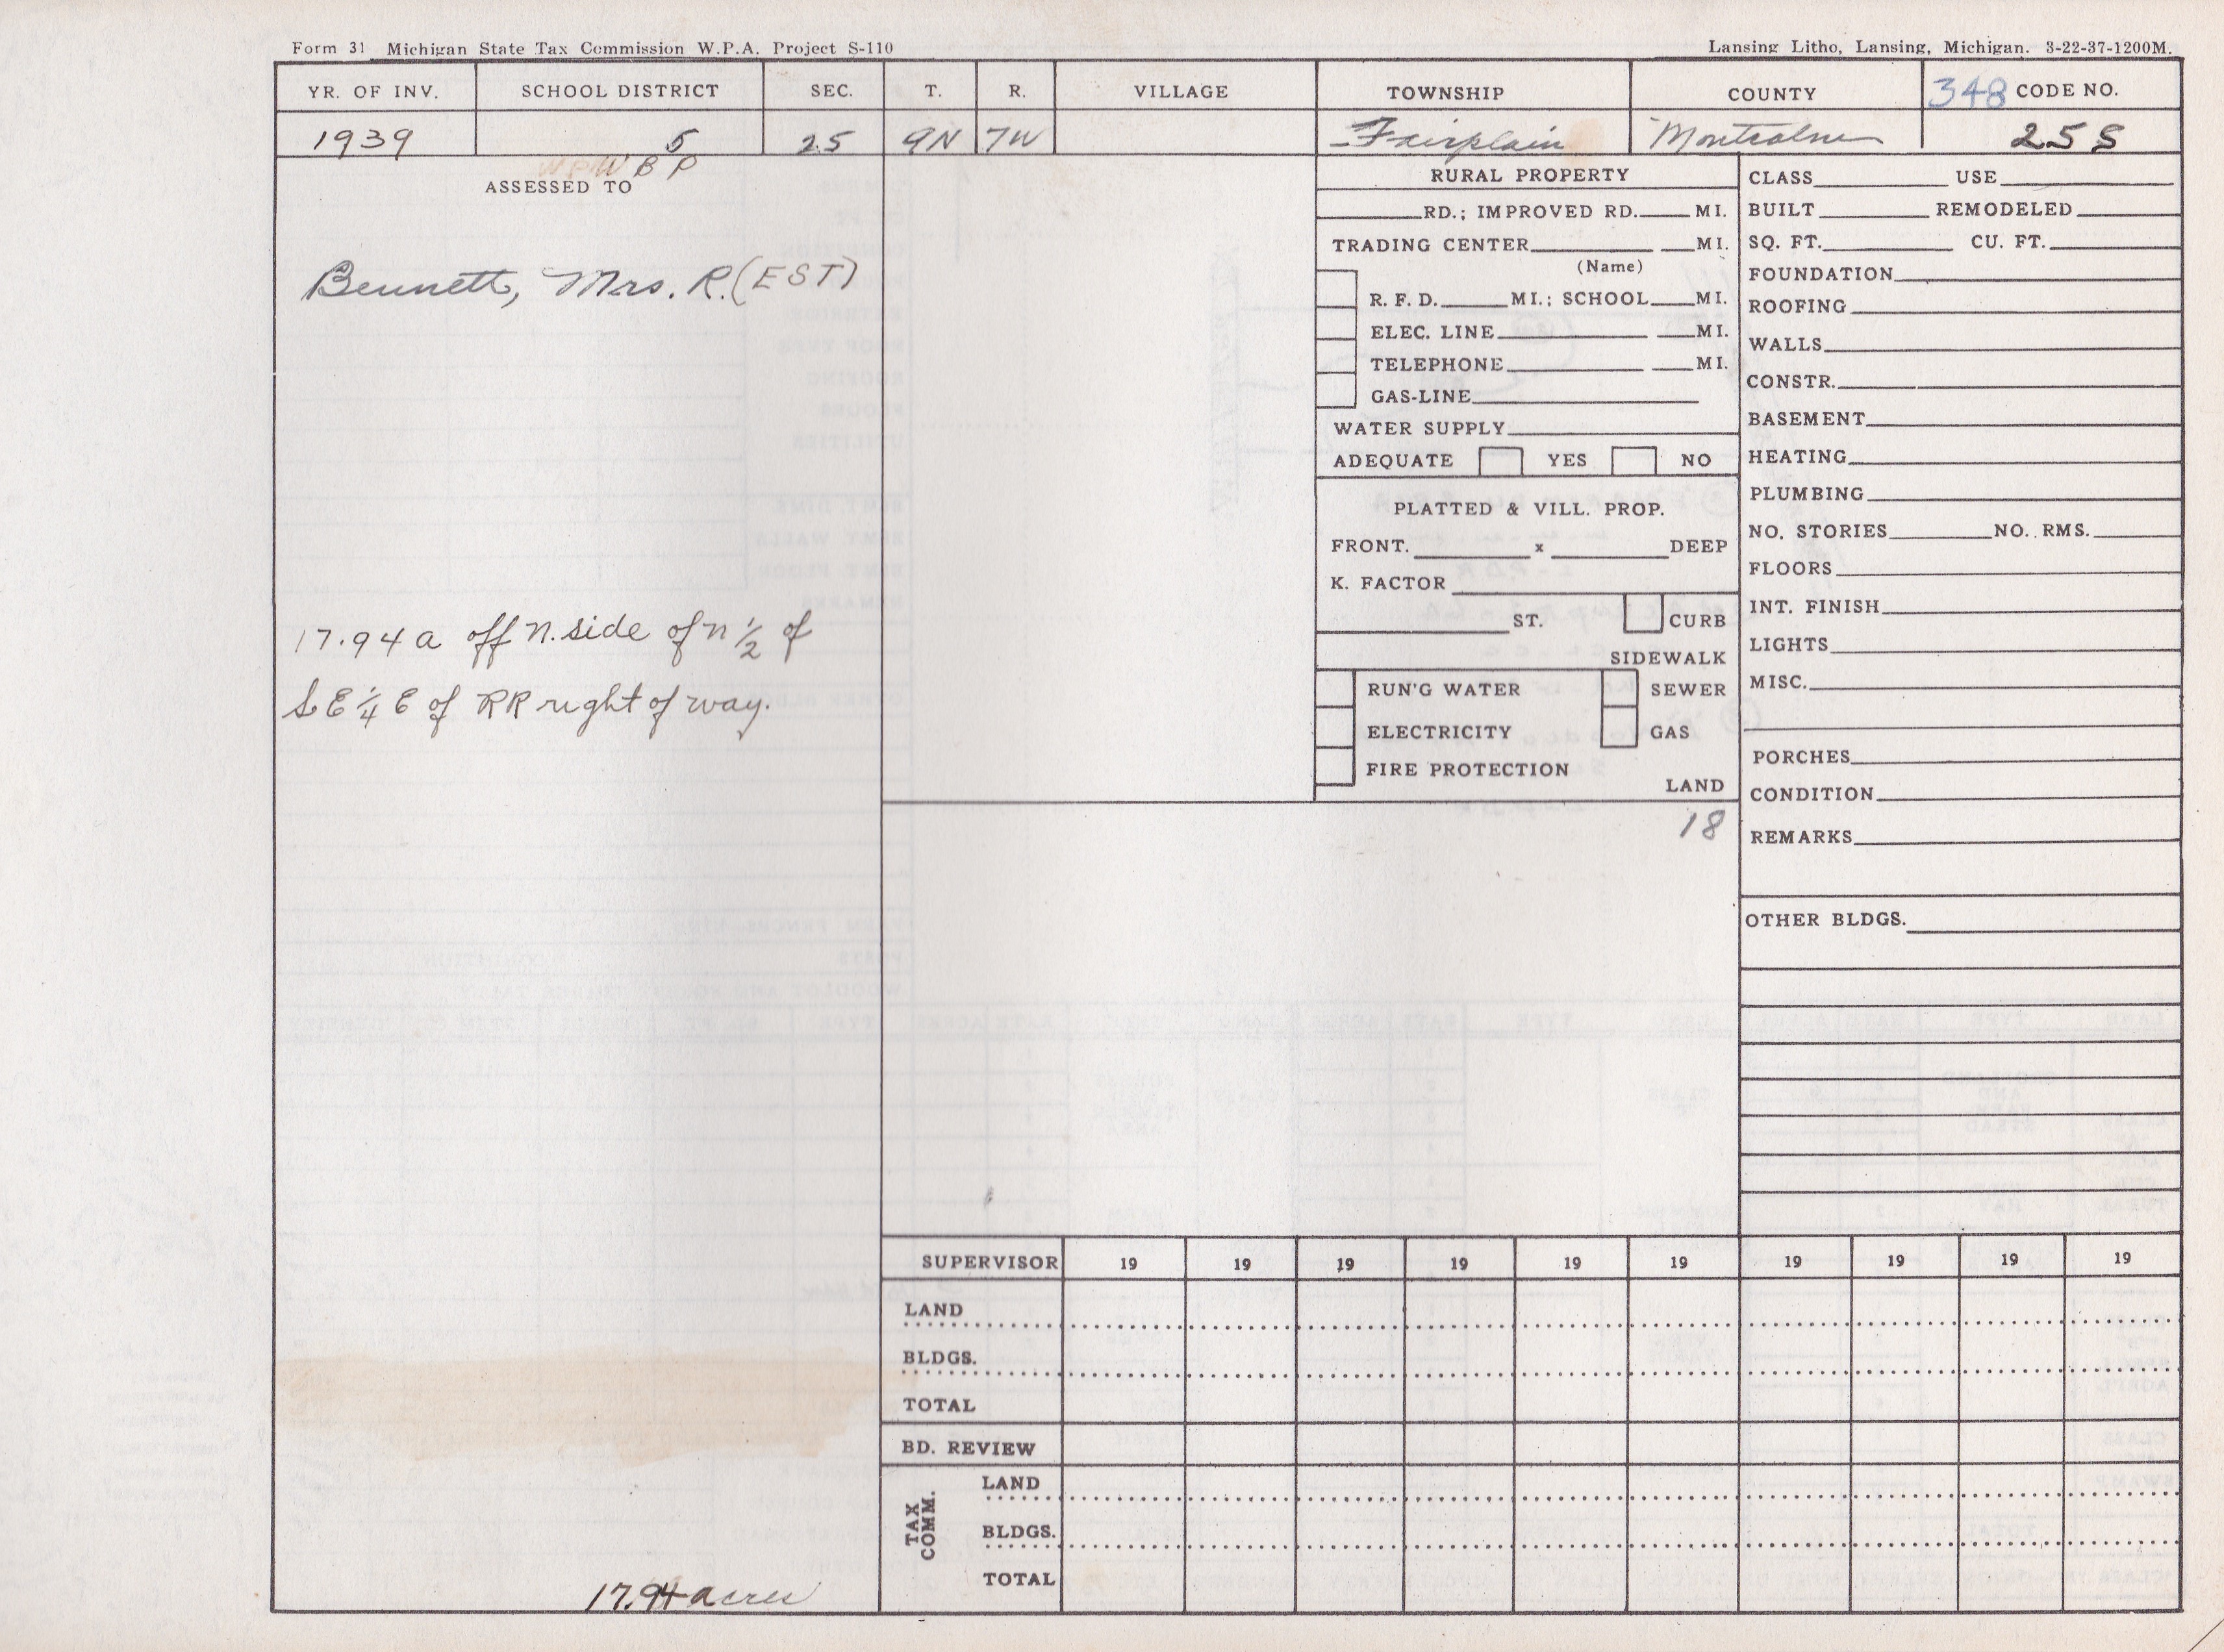 Form 31 Michigan State Tax Commission W.P.A. Project S-110
Lansing Litho, Lansing, Michigan. 3-22-37-1200M.
YR. OF INV. SCHOOL DISTRICT SEC. T. R. VILLAGE TOWNSHIP COUNTY 348 CODE NO.
1939 5 25 9N 7W Fairplain Montcalm 25 S
B P
ASSESSED TO
Bennett, Mrs. R. (EST)
17.94 a off N. side of N 1/2 of
S E 1/4 E of RR right of way.
17.94 acres
RURAL PROPERTY
RD.; IMPROVED RD. MI.
TRADING CENTER MI.
(Name)
R. F. D. MI.; SCHOOL MI.
ELEC. LINE MI.
TELEPHONE MI.
GAS-LINE
WATER SUPPLY
ADEQUATE YES NO
PLATTED & VILL. PROP.
FRONT. x DEEP
K. FACTOR
ST. CURB
SIDEWALK
RUN'G WATER SEWER
ELECTRICITY GAS
FIRE PROTECTION
LAND
18
CLASS USE
BUILT REMODELED
SQ. FT. CU. FT.
FOUNDATION
ROOFING
WALLS
CONSTR.
BASEMENT
HEATING
PLUMBING
NO. STORIES NO. RMS.
FLOORS
INT. FINISH
LIGHTS
MISC.
PORCHES
CONDITION
REMARKS
OTHER BLDGS.
SUPERVISOR 19 19 19 19 19 19 19 19 19 19
LAND
BLDGS.
TOTAL
BD. REVIEW
TAX COMM.
LAND
BLDGS.
TOTAL